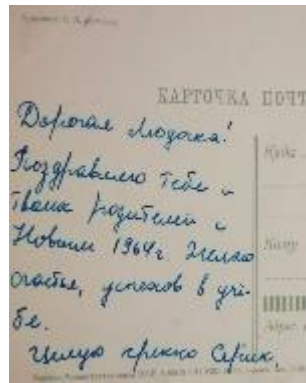 КАРТОЧКА ПОЧТ
Куда
Дорогая Людочка!
Поздравляю тебя и
твоих родителей с
Новым 1964г. Желаю
счастья, успехов в учё-
бе.
Кому
Целую крепко
Адрес